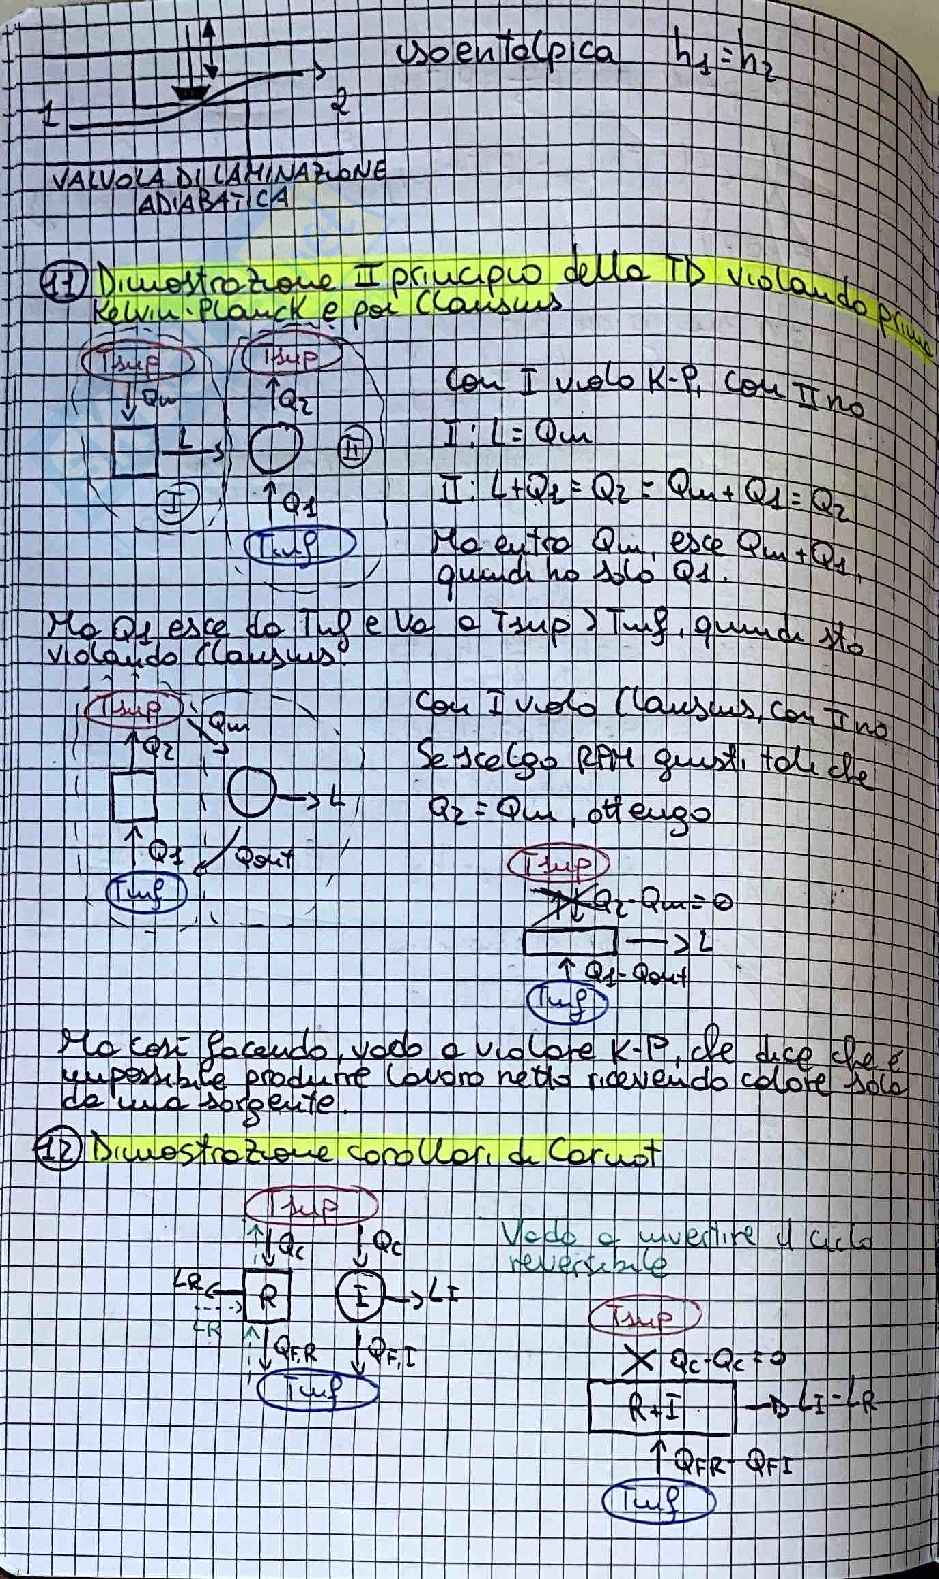 isoentalpica h1=h2
1
2
VALVOLA DI LAMINAZIONE
ADIABATICA
11 Dimostrazione II principio della TD violando prima
Kelvin-Planck e poi Clausius
Tsup
Tsup
Qin
Q2
L
I
II
Q1
Tinf
Con I violo K-P, con II no
I: L=Qin
II: L+Q1=Q2=Qin+Q1=Q2
Ma entra Qin, esce Qin+Q1,
quindi ho solo Q1.
Ma Q1 esce da Tinf e va a Tsup>Tinf, quindi sto
violando Clausius!
Tsup
Qin
Q2
L
Q1
Qout
Tinf
Con I violo Clausius, con II no
Se scelgo RPM giusti tali che
Q2=Qin, ottengo
Tsup
Q2-Qin=0
L
Q1-Qout
Tinf
Ma così facendo, vado a violare K-P, che dice che è
impossibile produrre lavoro netto ricevendo calore solo
da una sorgente.
12 Dimostrazione corollari di Carnot
Tsup
Qc
Qc
LR
R
I
LI
LR
QF,R
QF,I
Tinf
Vado a invertire il ciclo
reversibile
Tsup
Qc-Qc=0
R+I
LI-LR
QFR-QFI
Tinf